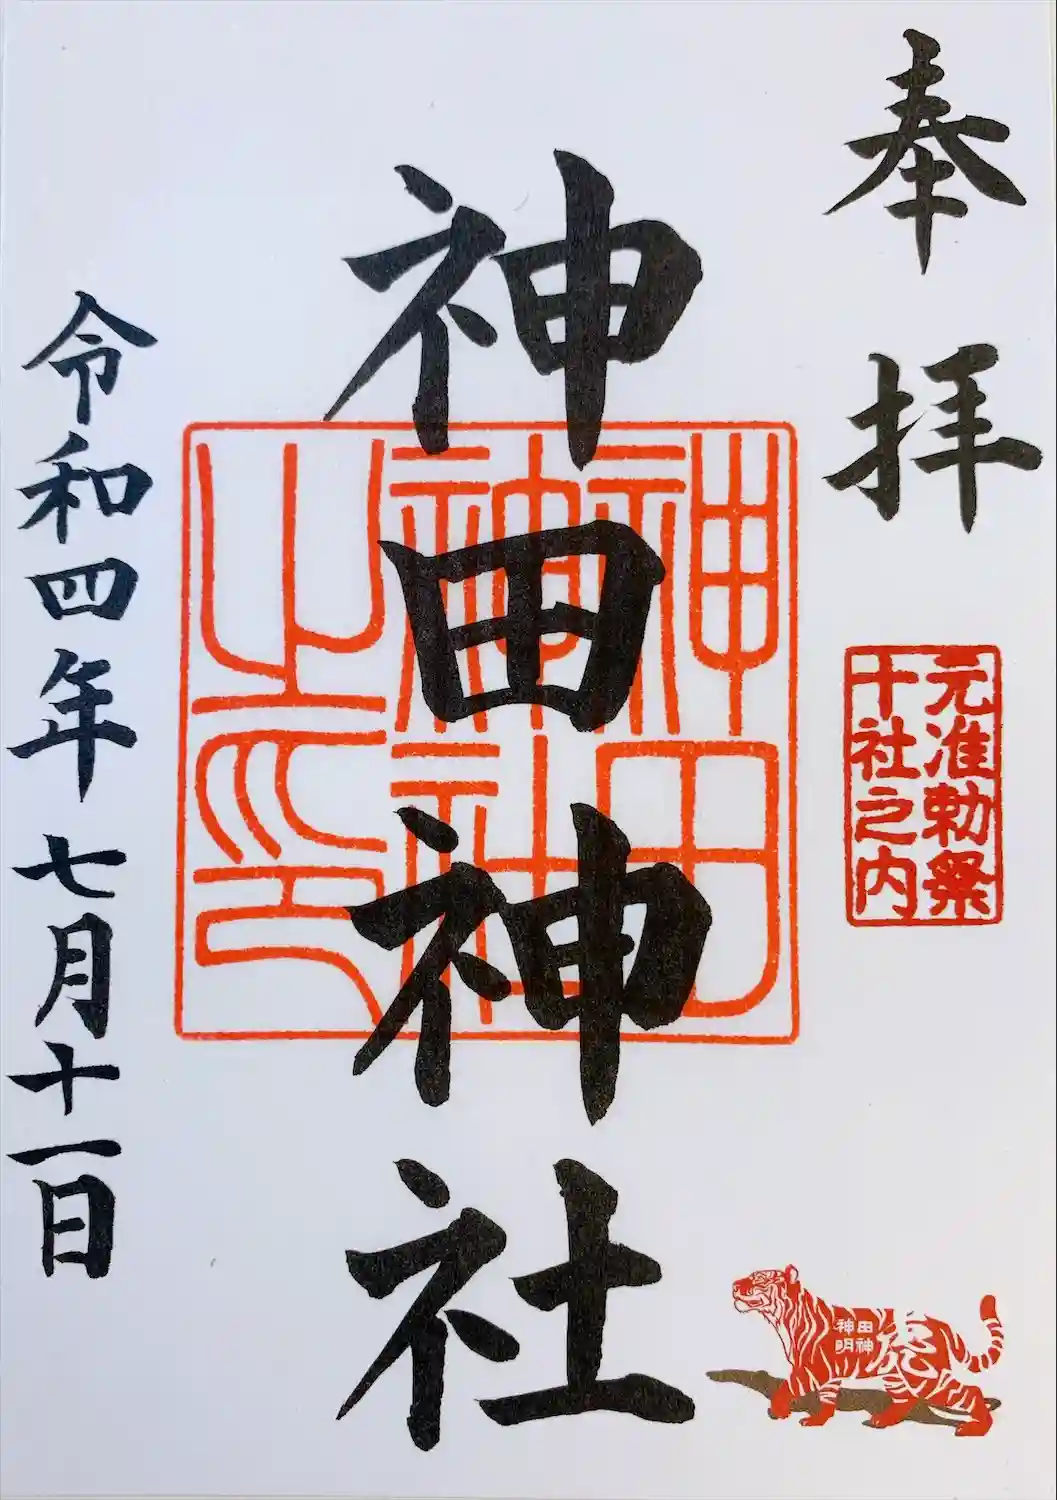 奉拝
元准勅祭
十社之内
神田神社
神田
神社
之印
神田
明神
虎
令和四年七月十一日